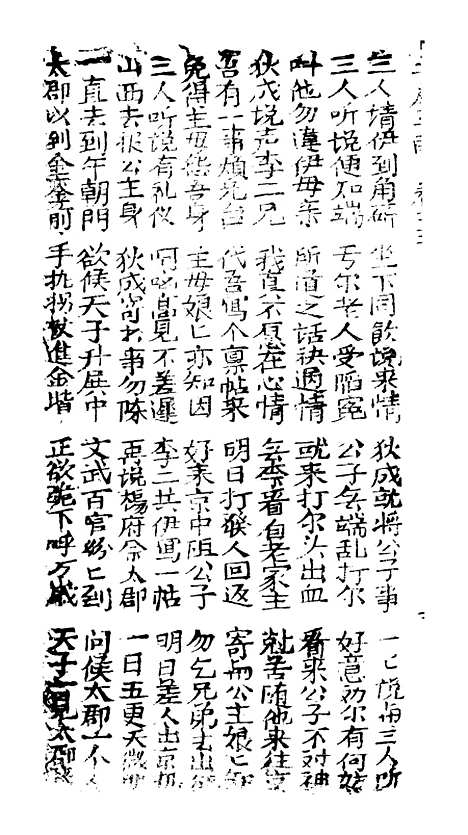 三人請伊到廟 坐下同飲說來情 狄成就將公子事 一匕說與三人听
三人听說便知端 亏尔老人受陷冤 公子無端乱打尔 好意勸尔有何
叫他勿違伊母亲 所道之話袂過情 就来打尔头出血 看来公子不对神
狄成說声李二兄 我真不愿在心情 無奈看自老家主 尅苦随他来往京
吾有一事煩兄台 代吾寫个稟帖来 明日打發人回返 寄與公主娘匕知
免得主母怨吾身 主母娘匕亦知因 好来京中阻公子 勿乞兄弟去出
三人听說有礼仪 高見不差遲 李二共伊寫一帖 明日差人出京
山西去报公主身 狄成寄書事勿陳 再說楊府佘太郡 一日五更天微
一直去到午朝門 欲候天子升展中 文武百官紛匕到 問候太郡一个人
太郡以到金鑾前 手扒拐杖進金堦 正欲跪下呼万歲 天子一見太郡